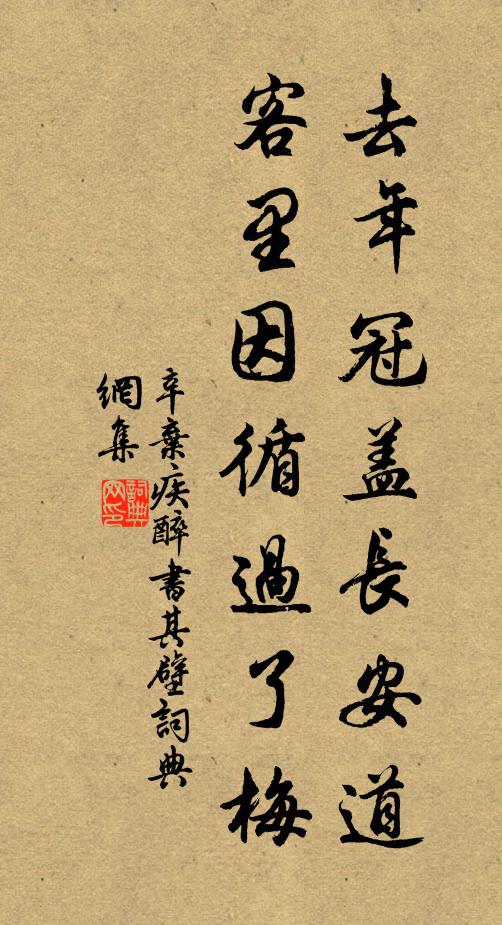 去年冠盖長安道
客里因循過了梅
辛棄疾醉書其壁詞典
網集
詞典
网印